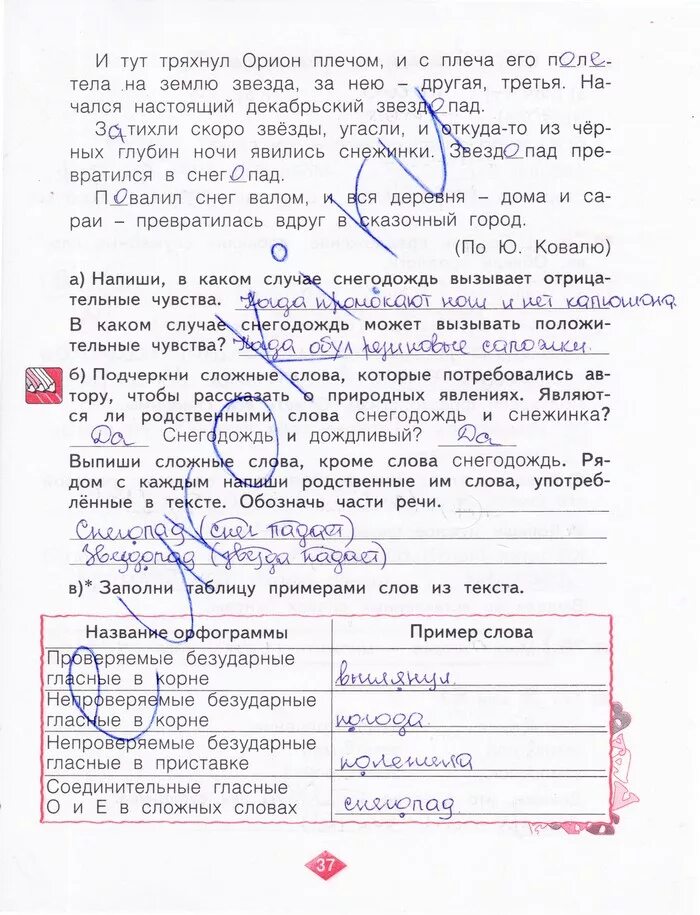 И тут тряхнул Орион плечом, и с плеча его поле-
тела на землю звезда, за нею – другая, третья. На-
чался настоящий декабрьский звездопад.
Затихли скоро звёзды, угасли, и откуда-то из чёр-
ных глубин ночи явились снежинки. Звездопад пре-
вратился в снегопад.
Повалил снег валом, и вся деревня – дома и са-
раи – превратилась вдруг в сказочный город.
(По Ю. Ковалю)
а) Напиши, в каком случае снегодождь вызывает отрица-
тельные чувства. Когда промокают ноги и нет капюшона.
В каком случае снегодождь может вызывать положи-
тельные чувства? Когда обул резиновые сапожки.
б) Подчеркни сложные слова, которые потребовались ав-
тору, чтобы рассказать о природных явлениях. Являют-
ся ли родственными слова снегодождь и снежинка?
Да Снегодождь и дождливый? Да
Выпиши сложные слова, кроме слова снегодождь. Ря-
дом с каждым напиши родственные им слова, употреб-
лённые в тексте. Обозначь части речи.
Снегопад (снег падает)
Звездопад (звезда падает)
в)* Заполни таблицу примерами слов из текста.
Название орфограммы Пример слова
Проверяемые безударные
гласные в корне выглянул
Непроверяемые безударные
гласные в корне погода
Непроверяемые безударные
гласные в приставке полетела
Соединительные гласные
О и Е в сложных словах снегопад
37